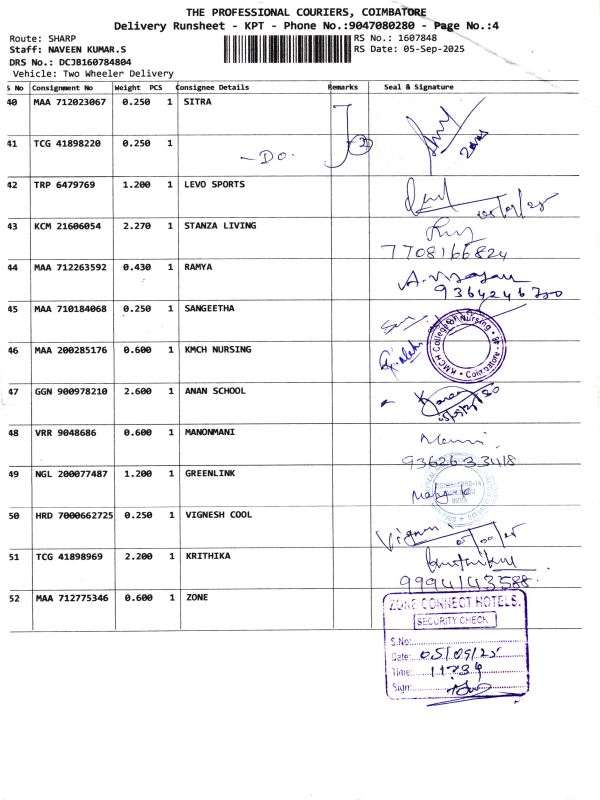 THE PROFESSIONAL COURIERS, COIMBATORE
Delivery Runsheet - KPT - Phone No.:9047080280 - Page No.:4
Route: SHARP RS No.: 1607848
Staff: NAVEEN KUMAR.S RS Date: 05-Sep-2025
DRS No.: DCJB160784804
Vehicle: Two Wheeler Delivery
S No Consignment No Weight PCS Consignee Details Remarks Seal & Signature
40 MAA 712023067 0.250 1 SITRA
41 TCG 41898220 0.250 1
- Do.
42 TRP 6479769 1.200 1 LEVO SPORTS
43 KCM 21606054 2.270 1 STANZA LIVING
7708166824
44 MAA 712263592 0.430 1 RAMYA
9364246750
45 MAA 710184068 0.250 1 SANGEETHA
46 MAA 200285176 0.600 1 KMCH NURSING
KMCH College of Nursing Coimbatore
47 GGN 900978210 2.600 1 ANAN SCHOOL
48 VRR 9048686 0.600 1 MANONMANI
9362633418
49 NGL 200077487 1.200 1 GREENLINK
50 HRD 7000662725 0.250 1 VIGNESH COOL
51 TCG 41898969 2.200 1 KRITHIKA
9994143588
52 MAA 712775346 0.600 1 ZONE
ZONE CONNECT HOTELS.
SECURITY CHECK
S.No:
Date: 05/09/25
Time: 11739
Sign: